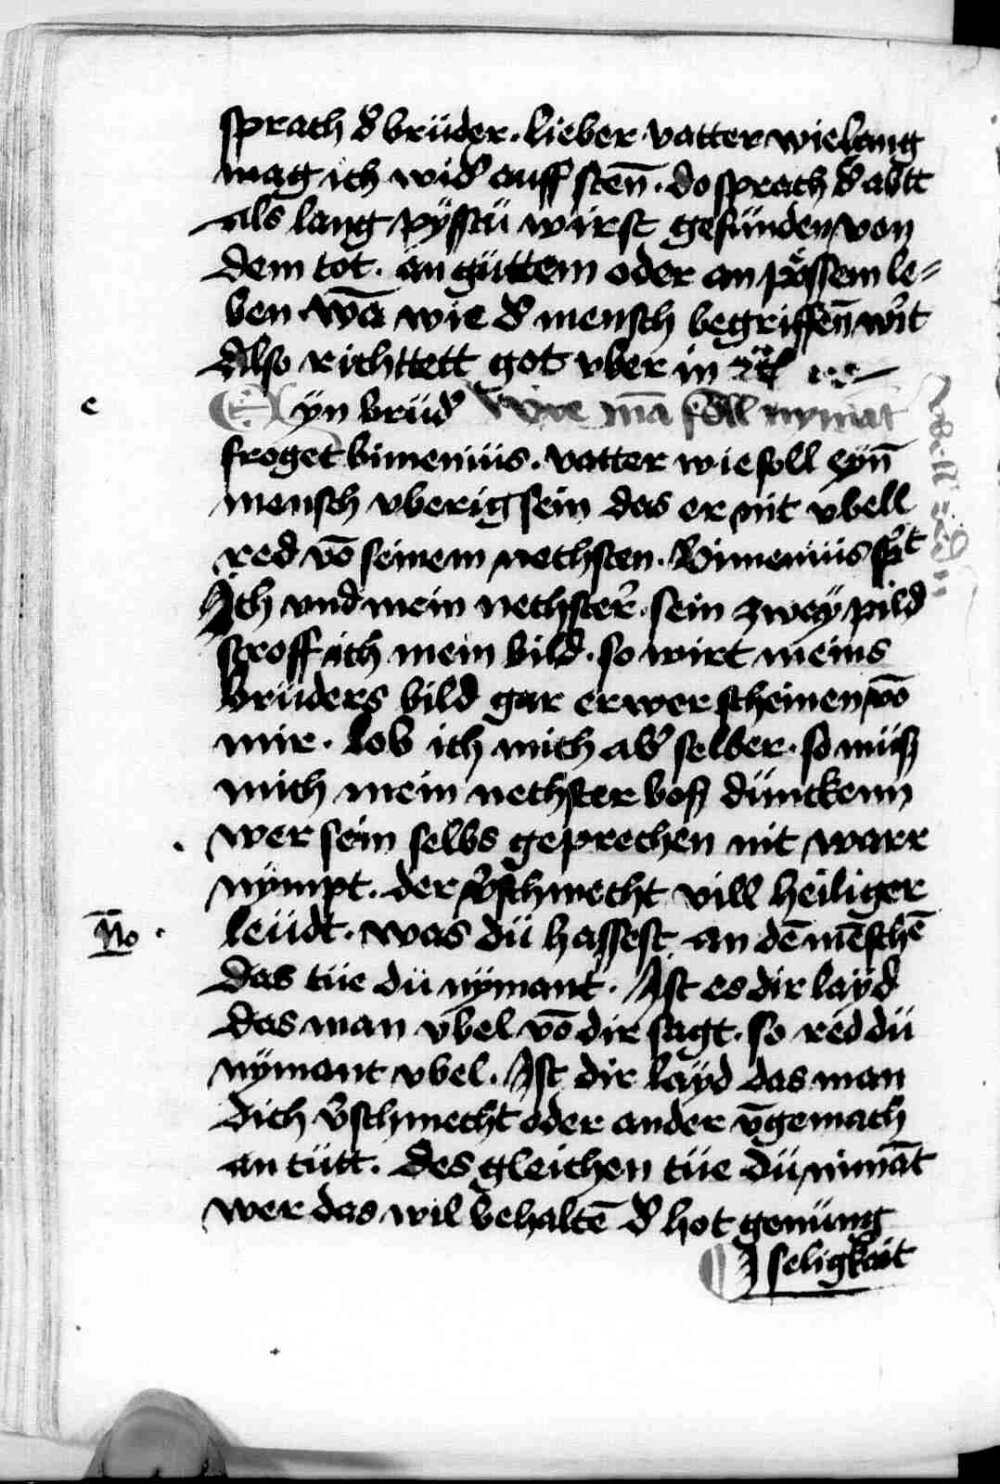 sprach d̕ brüder · lieber vatter wie lang
mag ich wid̕ auff sten̄ · do sprach d̕ abtt
als lang pÿstu würst gefünden von
dem tot · an güttem oder an pössem le=
ben · wā wie d̕ mensch begriffen̄ wirt
Also richttett got vber in
Eyn brüd̕ Wie mā soll nymāt
froget bimenius · vatter wie soll eyn̄
mensch vberig sein das er nit vbell
red vō seinem nechsten · Bimenius spͥt
Ich vnd mein nechster · sein zweÿ pild
stroff ich mein bild · so wirt meins
brüders bild gar erwer scheinen vō
mir · lob ich mich ab̕ selber · so müß
mich mein nechster boß dünckenn
wer sein selbs geprechen nit warr
nÿmpt · der v̕schmecht vill heiliger
No · leüdt · was dü hassest an dē mēschē
das tüe dü nÿmant · Ist es dir laÿd
das man vbel vō dir sagt · so red dü
nÿmant vbel · Ist dir laÿd das man
dich v̕schmecht oder ander vngemach
an tütt · des gleichen tüe dü nimāt
wer das wil behaltē d̕ hot genüng
seligkait